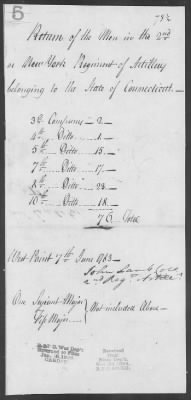 5
Return of the Men in the 2nd
or New York Regiment of Artillery
belonging to the State of Connecticut.—
3d Companie – 2 —
4th Ditto — 1 —
5th Ditto — 15 —
7th Ditto — 17 —
8th Ditto — 23 —
10th Ditto — 18 —
76 Total
West Point 7th June 1783 —
John Lamb Col
2nd Regt Artil
One Serjeant Major
Fife Major
Not included Above —